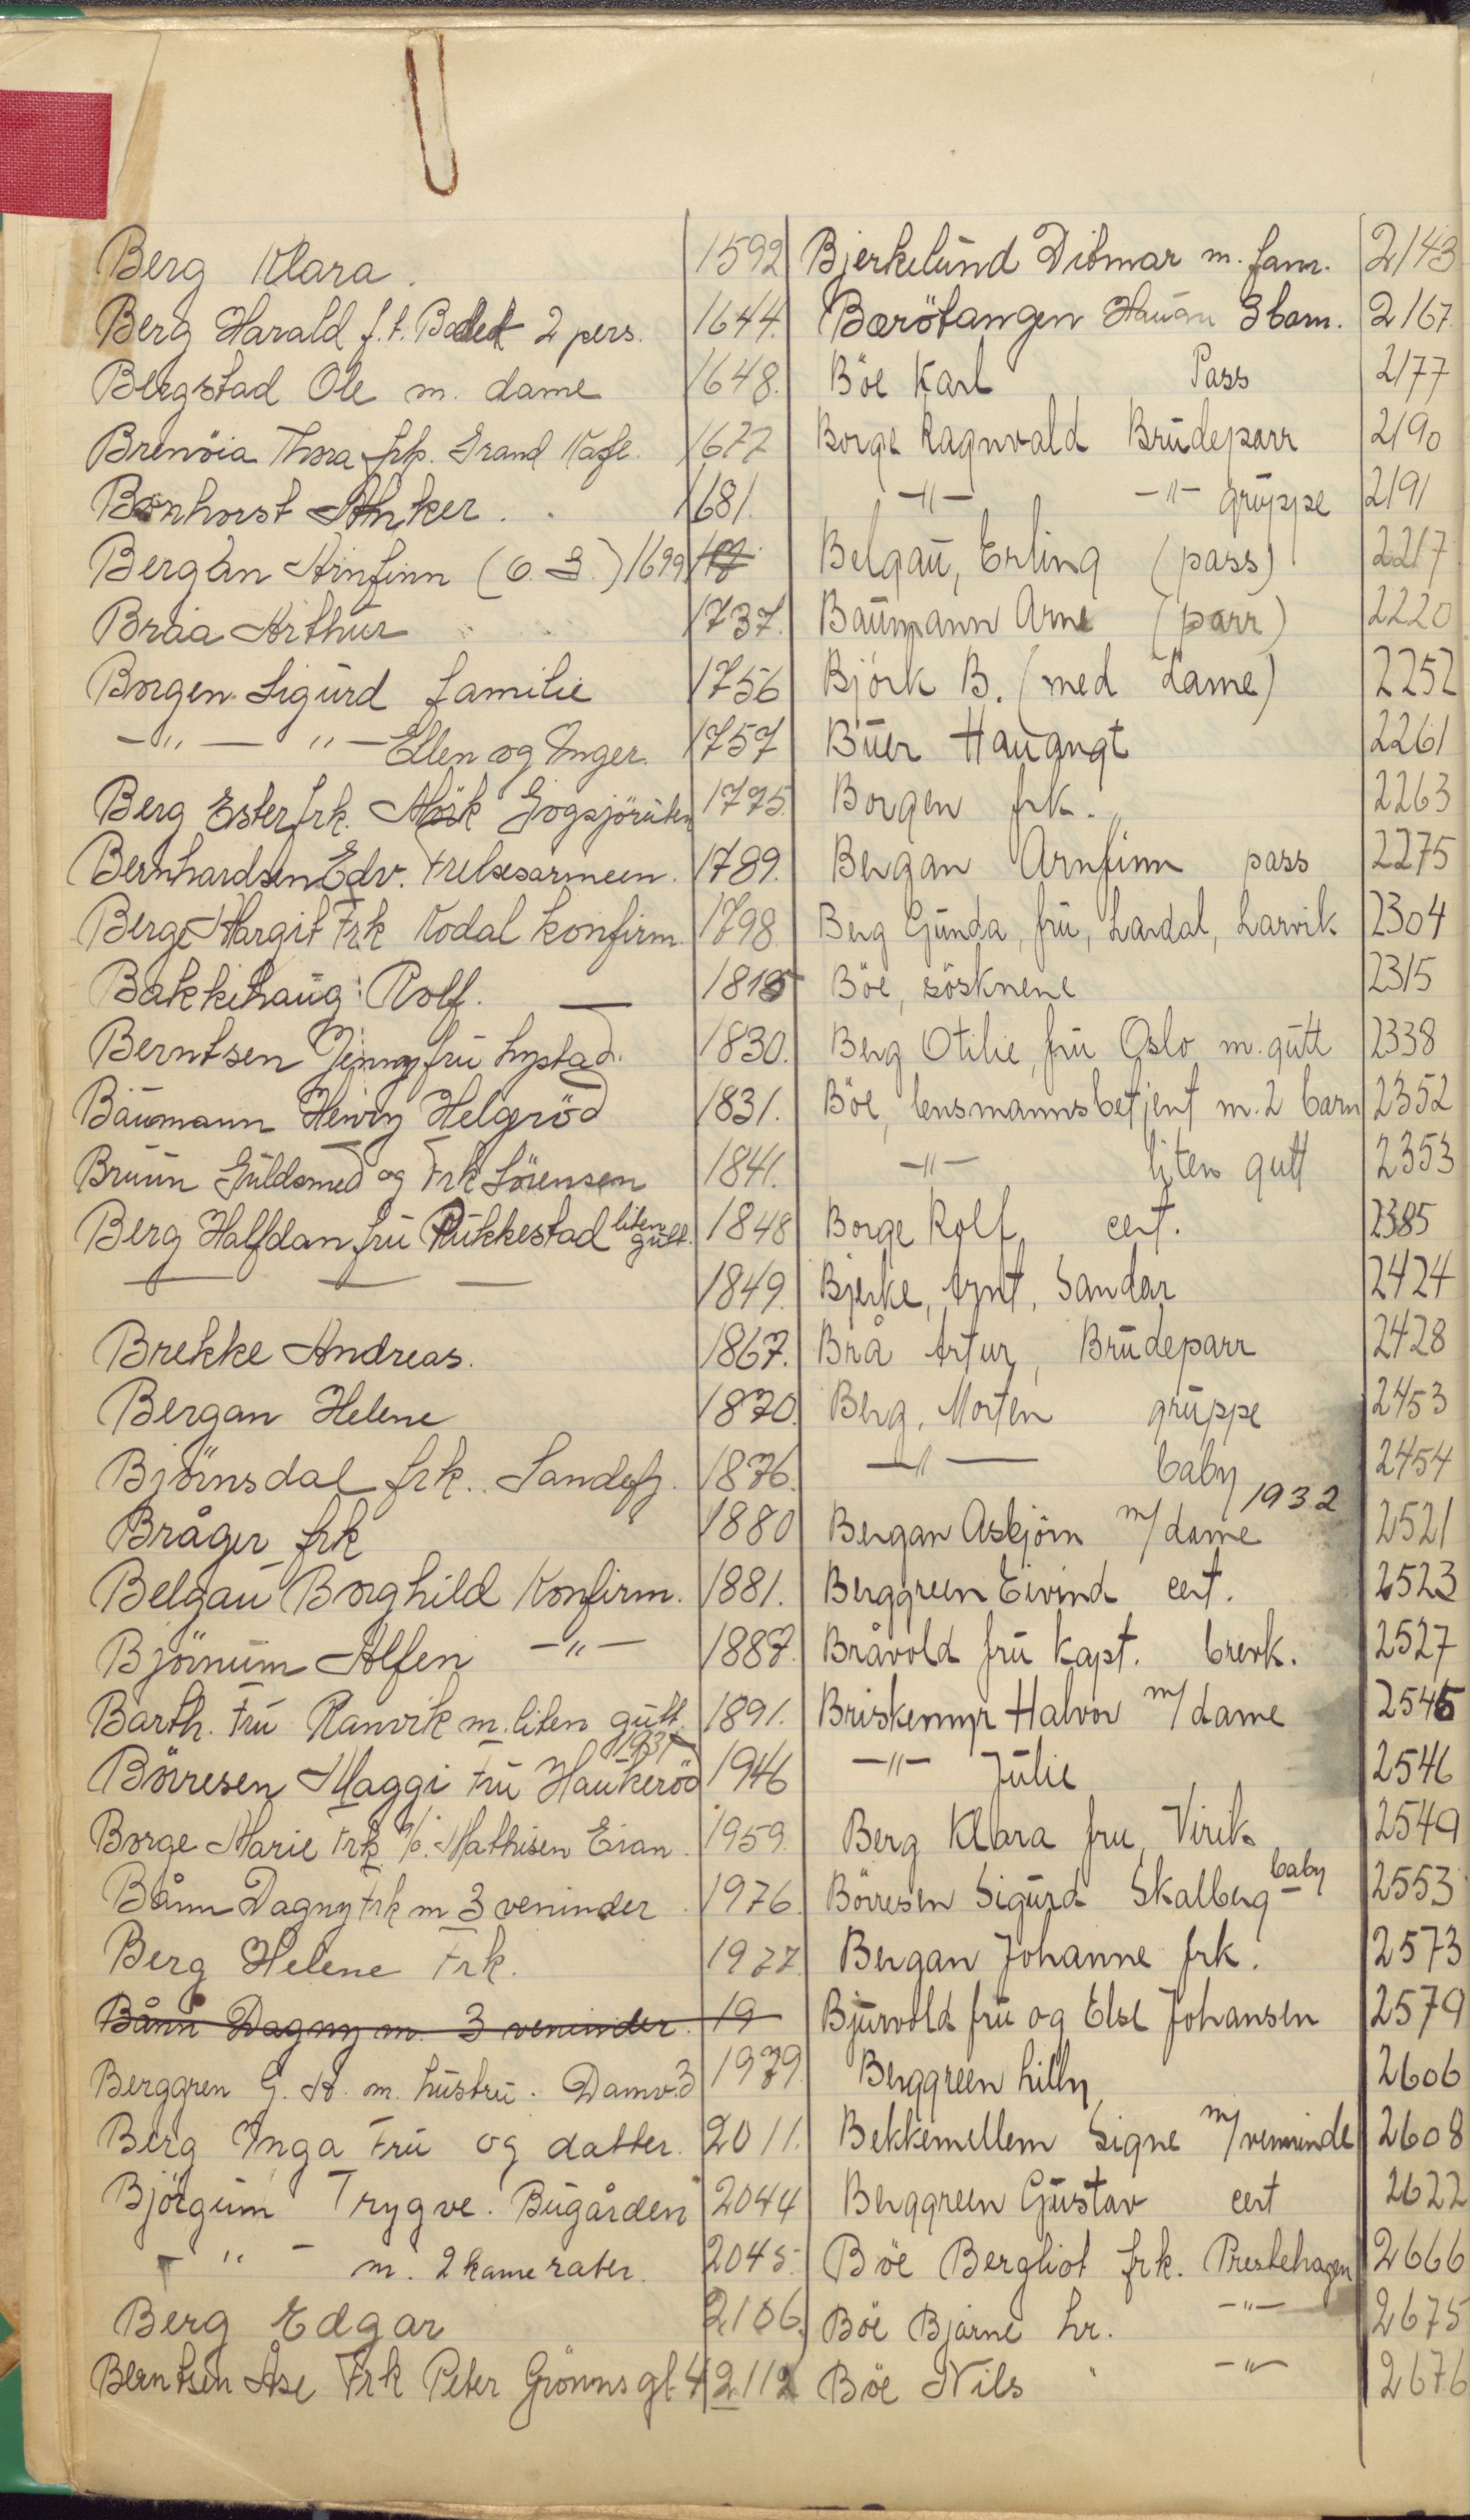 Berg Klara. 1592
Berg Harald f.t. Badet 2 pers. 1644.
Bergstad Ole m. dame 1648.
Brenöia Thora frk. Grand Kafe. 1677
Bonhorst Anker. 1681.
Bergan Arnfinn (O. S.) 1699
Braa Arthur 1737.
Borgen Sigurd familie 1756
-"- "- Ellen og Inger. 1757
Berg Ester frk. Gogsjöruten 1775.
Bernhardsen Edv. Frelsesarmeen. 1789.
Berge Margit Frk Kodal konfirm. 1798
Bakkehaug Rolf. — 1815
Berntsen Jenny fru Lystad. 1830.
Baumann Henry Helgeröd 1831.
Bruun Guldsmed og Frk Sörensen 1841.
Berg Halfdan fru Rukkestad liten gutt. 1848
— — — 1849.
Brekke Andreas. 1867.
Bergan Helene 1870.
Björnsdal frk. Sandefj. 1876.
Bråger frk 1880
Belgau Borghild Konfirm. 1881.
Björnum Alfen -"- 1887.
Barth. Fru Ranvik m. liten gutt. 1891.
1931
Börresen Maggi Fru Haukeröd 1946
Borge Marie Frk %. Mathisen Eian. 1959.
Bånn Dagny Frk m 3 veninder 1976.
Berg Helene Frk. 1977.
Bånn Dagny m. 3 veninder. 19
Berggren G. A. m. hustru. Damv. 3 1979.
Berg Inga Fru og datter. 2011.
Björgum Trygve. Bugården 2044
- " - m. 2 kamerater. 2045.
Berg Edgar 2106.
Berntsen Åse Frk Peter Grönns gt 4 2112
Bjerkelund Ditmar m. fam. 2143
Bærötangen Haugan 3 barn. 2167.
Böe Karl Pass 2177
Borge Ragnvald Brudeparr 2190
-"- -"- gruppe 2191
Belgau, Erling (pass) 2217
Baumann Arne (parr) 2220
Björk B. (med dame) 2252
Buer Hauangt 2261
Borgen frk. 2263
Bergan Arnfinn pass 2275
Berg Gunda, fru, Lardal, Larvik 2304
Böe, sösknene 2315
Berg Otilie, fru Oslo m. gutt 2338
Böe, lensmannsbetjent m. 2 barn 2352
-"- liten gutt 2353
Borge Rolf cert. 2385
Bjerke, Arnt, Sandar 2424
Brå Artur, Brudeparr 2428
Berg, Morten gruppe 2453
-"- baby 2454
1932
Bergan Asbjörn m/dame 2521
Berggreen Eivind cert. 2523
Bråvold fru kapt. brevk. 2527
Briskemyr Halvor m/dame 2545
-"- Julie 2546
Berg Klara fru, Virik 2549
Börresen Sigurd Skalberg baby 2553
Bergan Johanne frk. 2573
Bjurvold fru og Else Johansen 2579
Berggreen Lilly 2606
Bekkemellem Signe m/veninde 2608
Berggreen Gustav cert 2622
Böe Bergliot frk. Prestehagen 2666
Böe Bjarne hr. -"- 2675
Böe Nils " -"- 2676